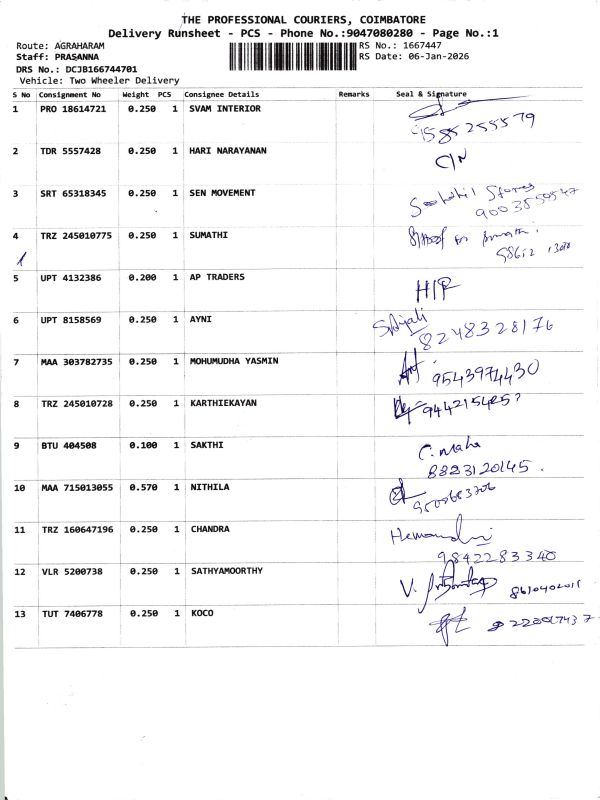 THE PROFESSIONAL COURIERS, COIMBATORE
Delivery Runsheet - PCS - Phone No.:9047080280 - Page No.:1
Route: AGRAHARAM RS No.: 1667447
Staff: PRASANNA RS Date: 06-Jan-2026
DRS No.: DCJB166744701
Vehicle: Two Wheeler Delivery
S No Consignment No Weight PCS Consignee Details Remarks Seal & Signature
1 PRO 18614721 0.250 1 SVAM INTERIOR
2 TDR 5557428 0.250 1 HARI NARAYANAN C/N
3 SRT 65318345 0.250 1 SEN MOVEMENT Stores
4 TRZ 245010775 0.250 1 SUMATHI
1
5 UPT 4132386 0.200 1 AP TRADERS
6 UPT 8158569 0.250 1 AYNI
8248328176
7 MAA 303782735 0.250 1 MOHUMUDHA YASMIN 9543974430
8 TRZ 245010728 0.250 1 KARTHIEKAYAN
9 BTU 404508 0.100 1 SAKTHI C. Maha
8883120145.
10 MAA 715013055 0.570 1 NITHILA
11 TRZ 160647196 0.250 1 CHANDRA
9842283340
12 VLR 5200738 0.250 1 SATHYAMOORTHY V.
13 TUT 7406778 0.250 1 KOCO